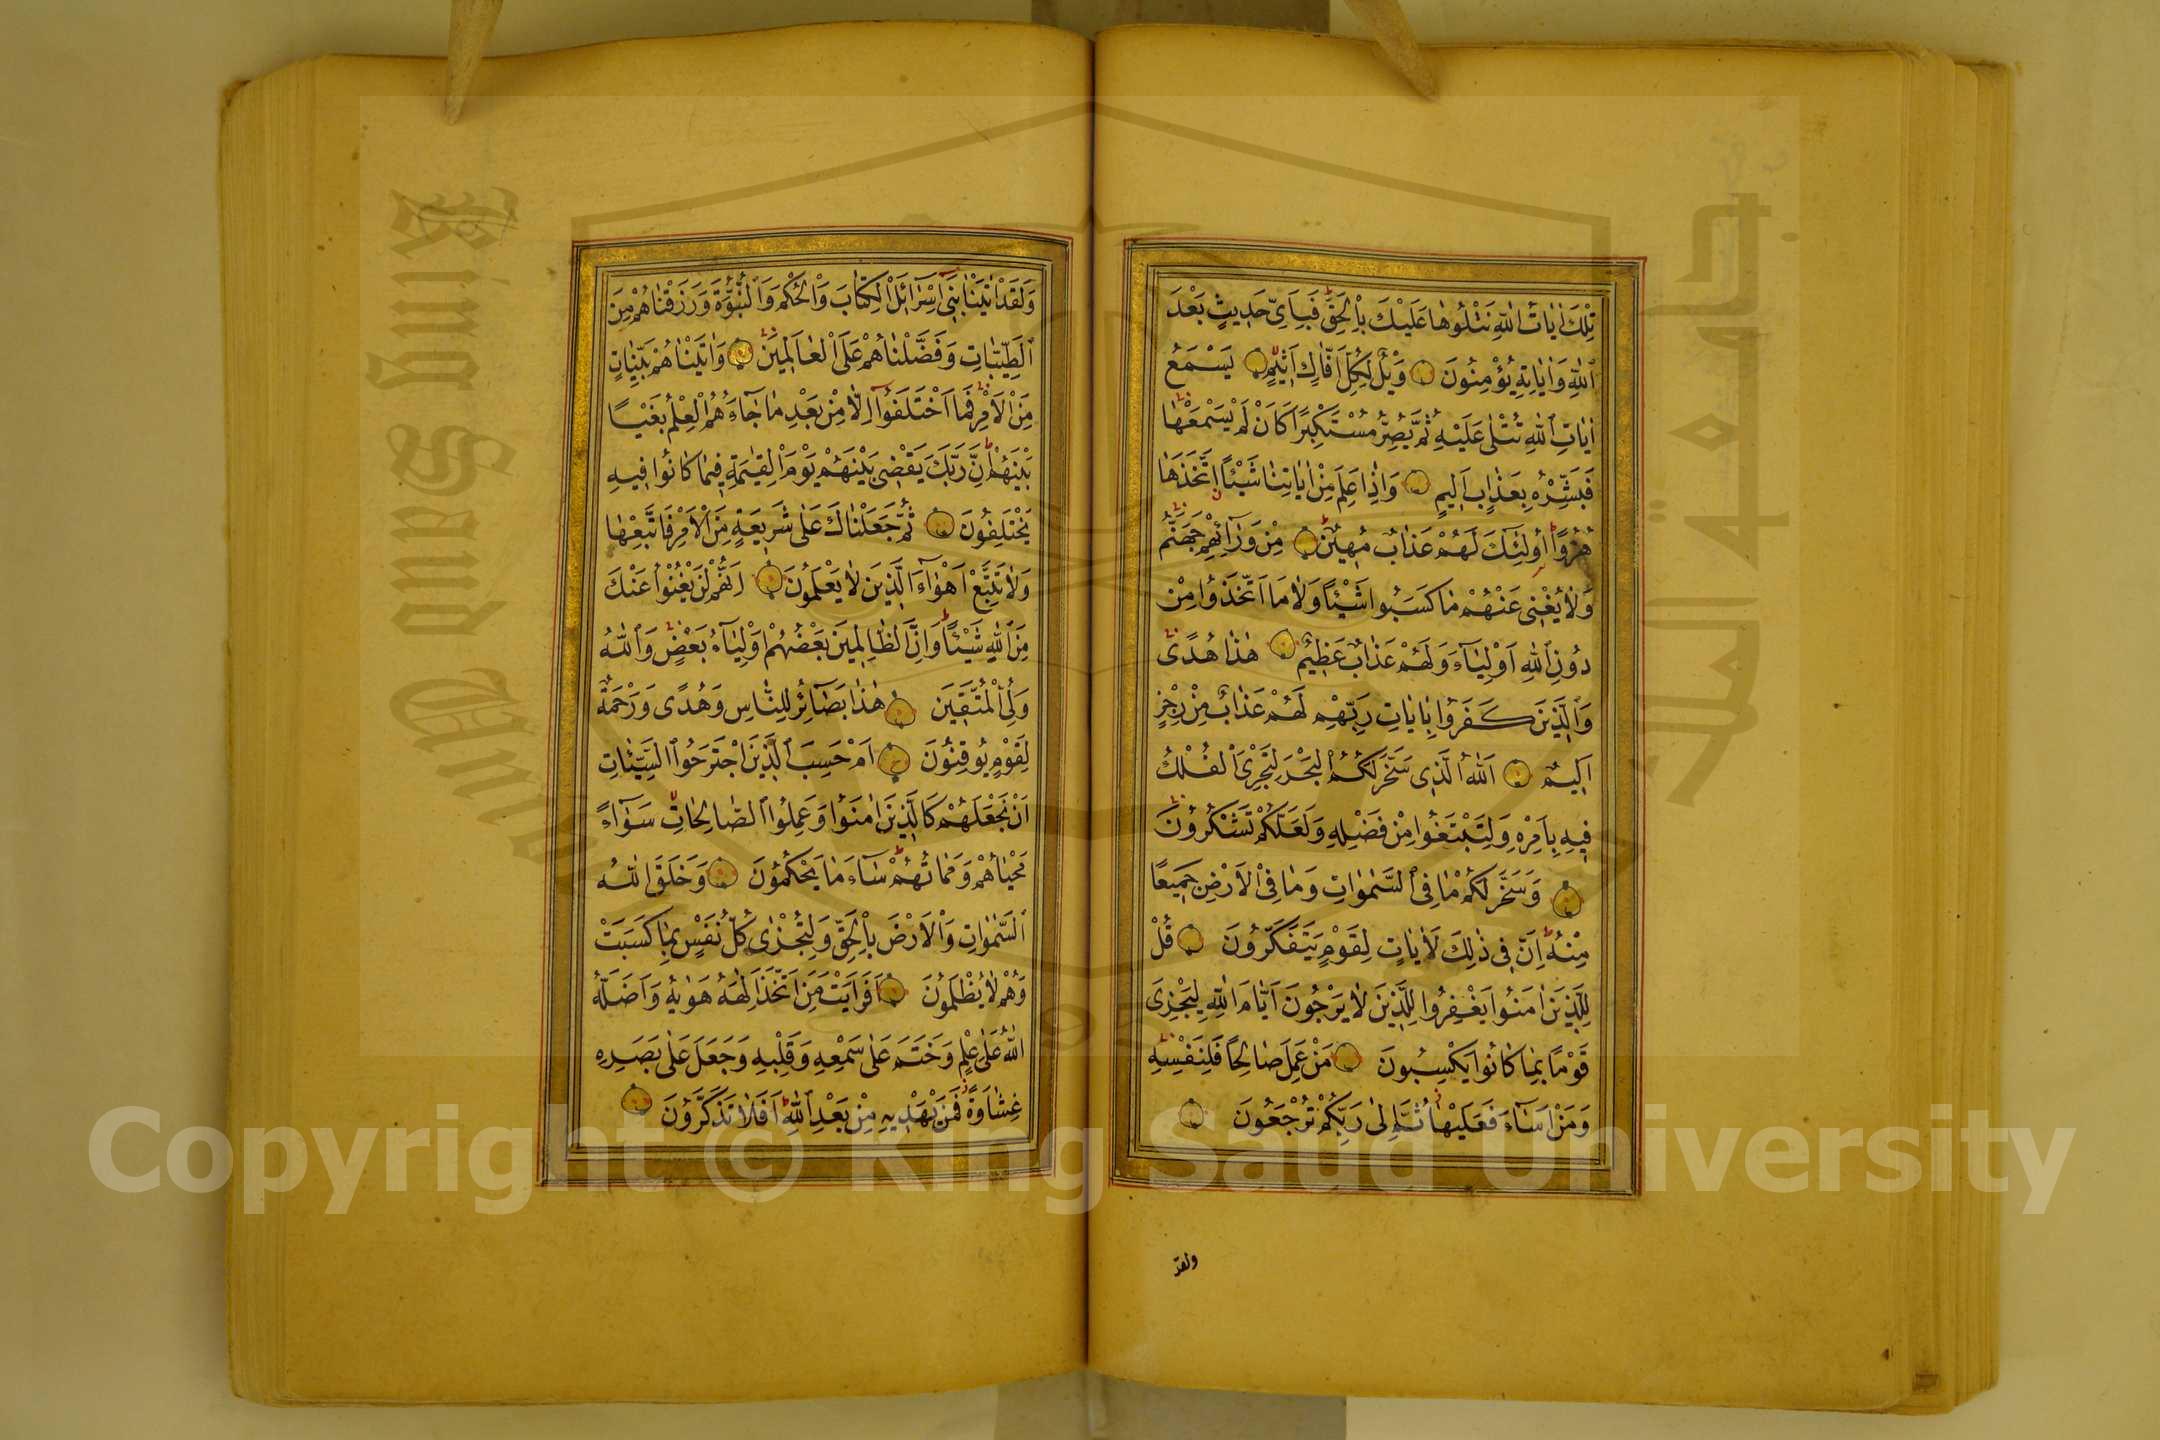 تِلْكَ اٰيَاتُ اللّٰهِ نَتْلُوهَا عَلَيْكَ بِالْحَقِّ فَبِاَىِّ حَدِيثٍ بَعْدَ
اللّٰهِ وَاٰيَاتِهِ يُؤْمِنُونَ وَيْلٌ لِكُلِّ اَفَّاكٍ اَثِيمٍ يَسْمَعُ
اٰيَاتِ اللّٰهِ تُتْلٰى عَلَيْهِ ثُمَّ يُصِرُّ مُسْتَكْبِرًا كَاَنْ لَمْ يَسْمَعْهَا
فَبَشِّرْهُ بِعَذَابٍ اَلِيمٍ وَاِذَا عَلِمَ مِنْ اٰيَاتِنَا شَيْئًا اتَّخَذَهَا
هُزُوًا اُولٰئِكَ لَهُمْ عَذَابٌ مُهِينٌ مِنْ وَرَائِهِمْ جَهَنَّمُ
وَلَا يُغْنِى عَنْهُمْ مَا كَسَبُوا شَيْئًا وَلَا مَا اتَّخَذُوا مِنْ
دُونِ اللّٰهِ اَوْلِيَاءَ وَلَهُمْ عَذَابٌ عَظِيمٌ هٰذَا هُدًى
وَالَّذِينَ كَفَرُوا بِاٰيَاتِ رَبِّهِمْ لَهُمْ عَذَابٌ مِنْ رِجْزٍ
اَلِيمٌ اَللّٰهُ الَّذِى سَخَّرَ لَكُمُ الْبَحْرَ لِتَجْرِىَ الْفُلْكُ
فِيهِ بِاَمْرِهِ وَلِتَبْتَغُوا مِنْ فَضْلِهِ وَلَعَلَّكُمْ تَشْكُرُونَ
وَسَخَّرَ لَكُمْ مَا فِى السَّمٰوَاتِ وَمَا فِى الْاَرْضِ جَمِيعًا
مِنْهُ اِنَّ فِى ذٰلِكَ لَاٰيَاتٍ لِقَوْمٍ يَتَفَكَّرُونَ قُلْ
لِلَّذِينَ اٰمَنُوا يَغْفِرُوا لِلَّذِينَ لَا يَرْجُونَ اَيَّامَ اللّٰهِ لِيَجْزِىَ
قَوْمًا بِمَا كَانُوا يَكْسِبُونَ مَنْ عَمِلَ صَالِحًا فَلِنَفْسِهِ
وَمَنْ اَسَاءَ فَعَلَيْهَا ثُمَّ اِلٰى رَبِّكُمْ تُرْجَعُونَ
ولقد
وَلَقَدْ اٰتَيْنَا بَنِى اِسْرَائِلَ الْكِتَابَ وَالْحُكْمَ وَالنُّبُوَّةَ وَرَزَقْنَاهُمْ مِنَ
الطَّيِّبَاتِ وَفَضَّلْنَاهُمْ عَلَى الْعَالَمِينَ وَاٰتَيْنَاهُمْ بَيِّنَاتٍ
مِنَ الْاَمْرِ فَمَا اخْتَلَفُوا اِلَّا مِنْ بَعْدِ مَا جَاءَهُمُ الْعِلْمُ بَغْيًا
بَيْنَهُمْ اِنَّ رَبَّكَ يَقْضِى بَيْنَهُمْ يَوْمَ الْقِيٰمَةِ فِيمَا كَانُوا فِيهِ
يَخْتَلِفُونَ ثُمَّ جَعَلْنَاكَ عَلٰى شَرِيعَةٍ مِنَ الْاَمْرِ فَاتَّبِعْهَا
وَلَا تَتَّبِعْ اَهْوَاءَ الَّذِينَ لَا يَعْلَمُونَ اِنَّهُمْ لَنْ يُغْنُوا عَنْكَ
مِنَ اللّٰهِ شَيْئًا وَاِنَّ الظَّالِمِينَ بَعْضُهُمْ اَوْلِيَاءُ بَعْضٍ وَاللّٰهُ
وَلِىُّ الْمُتَّقِينَ هٰذَا بَصَائِرُ لِلنَّاسِ وَهُدًى وَرَحْمَةٌ
لِقَوْمٍ يُوقِنُونَ اَمْ حَسِبَ الَّذِينَ اجْتَرَحُوا السَّيِّئَاتِ
اَنْ نَجْعَلَهُمْ كَالَّذِينَ اٰمَنُوا وَعَمِلُوا الصَّالِحَاتِ سَوَاءً
مَحْيَاهُمْ وَمَمَاتُهُمْ سَاءَ مَا يَحْكُمُونَ وَخَلَقَ اللّٰهُ
السَّمٰوَاتِ وَالْاَرْضَ بِالْحَقِّ وَلِتُجْزٰى كُلُّ نَفْسٍ بِمَا كَسَبَتْ
وَهُمْ لَا يُظْلَمُونَ اَفَرَاَيْتَ مَنِ اتَّخَذَ اِلٰهَهُ هَوٰيهُ وَاَضَلَّهُ
اللّٰهُ عَلٰى عِلْمٍ وَخَتَمَ عَلٰى سَمْعِهِ وَقَلْبِهِ وَجَعَلَ عَلٰى بَصَرِهِ
غِشَاوَةً فَمَنْ يَهْدِيهِ مِنْ بَعْدِ اللّٰهِ اَفَلَا تَذَكَّرُونَ
Copyright © King Saud University